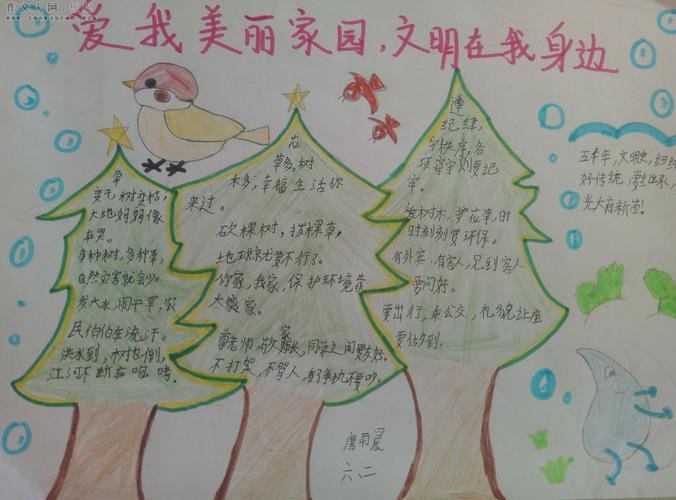 作文人网
www.zuowenren.com
爱我美丽家园,文明在我身边
草
变干,树变枯,
大地妈妈像
在哭。
多种树,多种草,
自然灾害就会少。
发大水,闹干旱,农
民伯伯在流汗。
洪水到,树也倒,
江河不断在咆哮。
花
草多,树
木多,幸福生活你
来过。
砍棵树,拔棵草,
地球就要不行了。
你家,我家,保护环境靠
大家。
尊老师,敬家长,同学之间要友好。
不打架,不骂人,有了争执不要吵。
遵
纪律,
守秩序,各
项守则要记
牢。
爱树木,护花草,时
时刻刻要环保。
有外宾,有客人,见到客人
要问好。
要出行,乘公交,礼貌让座
要估夕到。
五千年,文明史,
好传统,要继承,
光大有新苗!
唐雨晨
六二